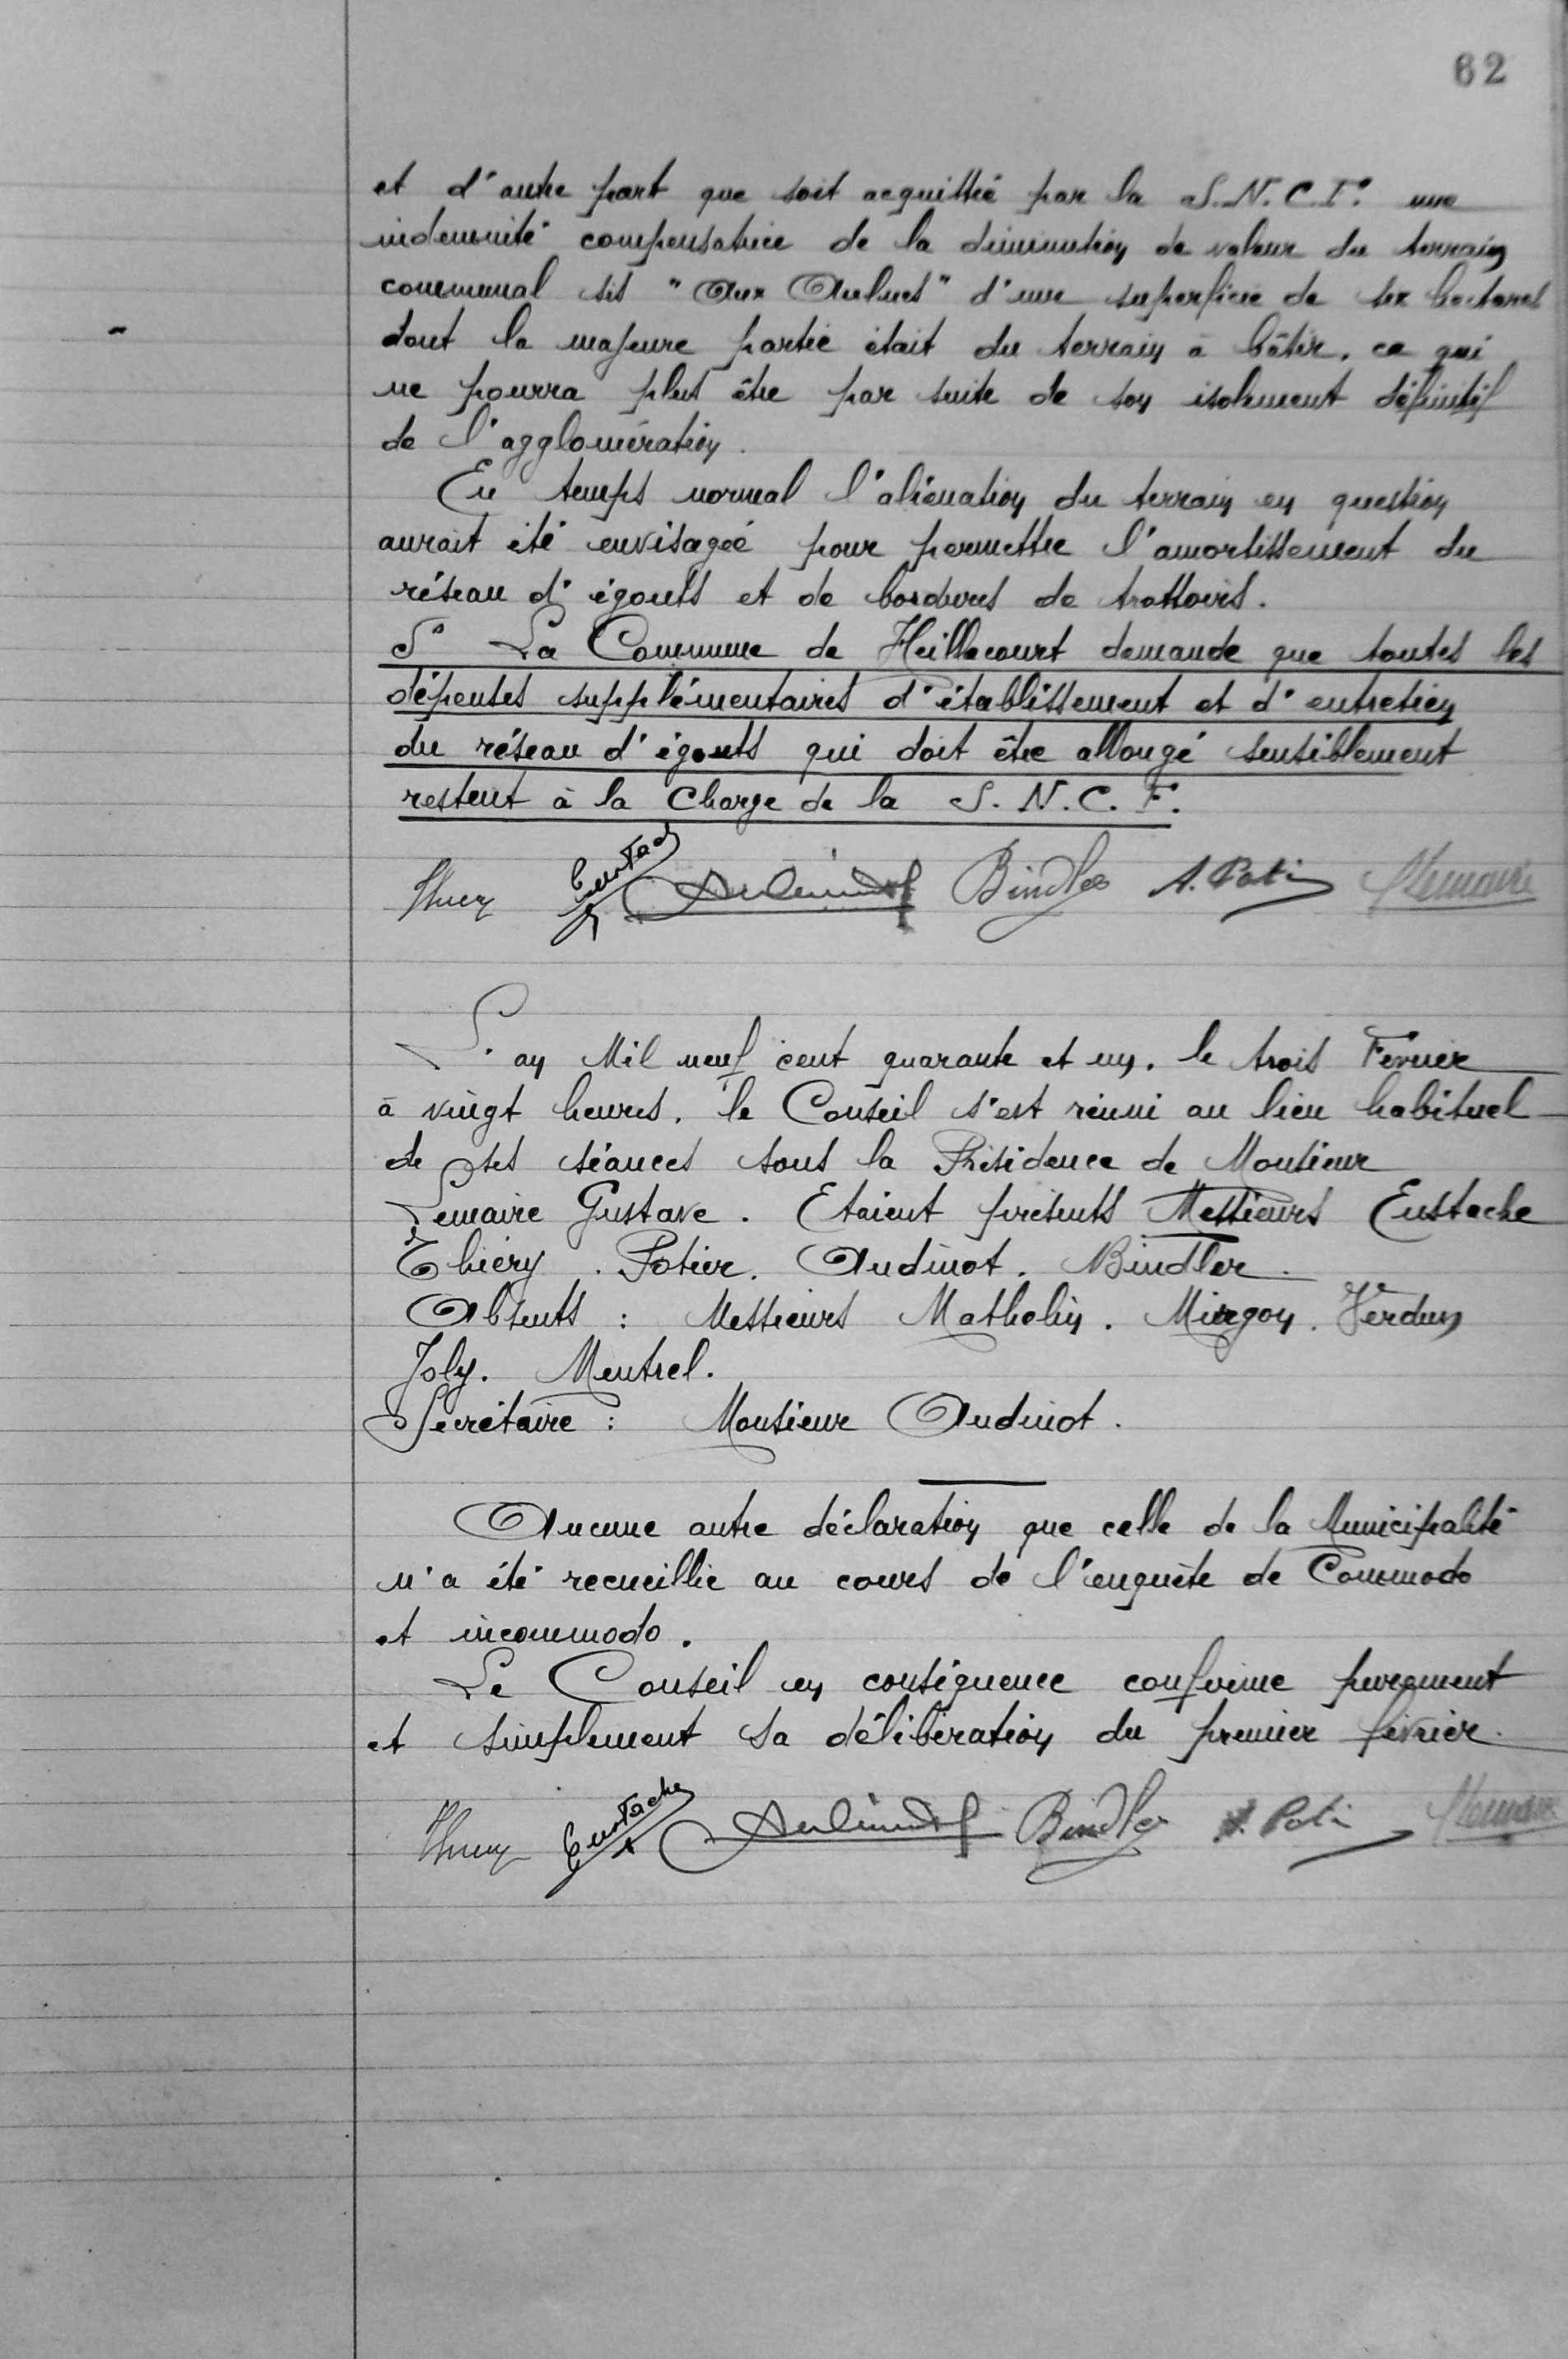 62
et d'autre part que soit acquittée par la S.N.C.F. une
indemnité compensatrice de la diminution de valeur du terrain
communal sis "Aux Aulnes" d'une superficie de six hectares
dont la majeure partie était du terrain à bâtir, ce qui
ne pourra plus être par suite de son isolement définitif
de l'agglomération.
En temps normal l'aliénation du terrain en question
aurait été envisagée pour permettre l'amortissement du
réseau d'égouts et de bordures de trottoirs.
5° La Commune de Heillecourt demande que toutes les
dépenses supplémentaires d'établissement et d'entretien
du réseau d'égouts qui doit être allongé sensiblement
restent à la charge de la S.N.C.F.
Eustache Bindler A. Poti Lemaire
L'an Mil neuf cent quarante et un, le trois Février
à vingt heures, le Conseil s'est réuni au lieu habituel
de ses séances sous la Présidence de Monsieur
Lemaire Gustave. Etaient présents Messieurs Eustache
Thiéry. Potier. Audinot. Bindler.
Absents : Messieurs Mathelin. Mirgon. Verdun
Joly. Mentrel.
Secrétaire : Monsieur Audinot.
Aucune autre déclaration que celle de la Municipalité
n'a été recueillie au cours de l'enquête de Commodo
et incommodo.
Le Conseil en conséquence confirme purement
et simplement sa délibération du premier février.
Eustache Bindler A. Poti Lemaire